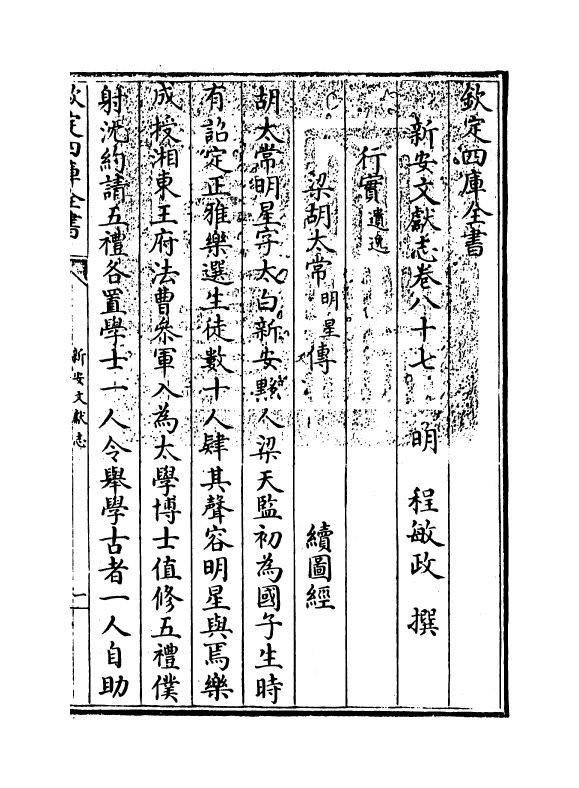 欽定四庫全書
新安文獻志卷八十七 明 程敏政 撰
行實遺逸
梁胡太常明星傳 續圖經
胡太常明星字太白新安黟人梁天監初為國子生時
有詔定正雅樂選生徒數十人肄其聲容明星與焉樂
成授湘東王府法曹叅軍入為太學博士值修五禮僕
射沈約請五禮各置學士一人令舉學古者一人自助
欽定四庫全書
新安文獻志
一